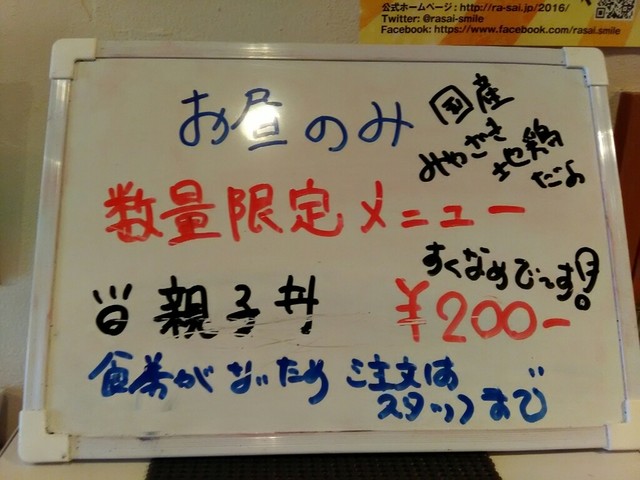 公式ホームページ : http://ra-sai.jp/2016/
Twitter: @rasai-smile
Facebook: https://www.facebook.com/rasai.smile
お昼のみ
国産
みやざき
地鶏
だよ
数量限定メニュー
すくなめでーす!
親子丼
¥200-
食券がないため ご注文は
スタッフまで